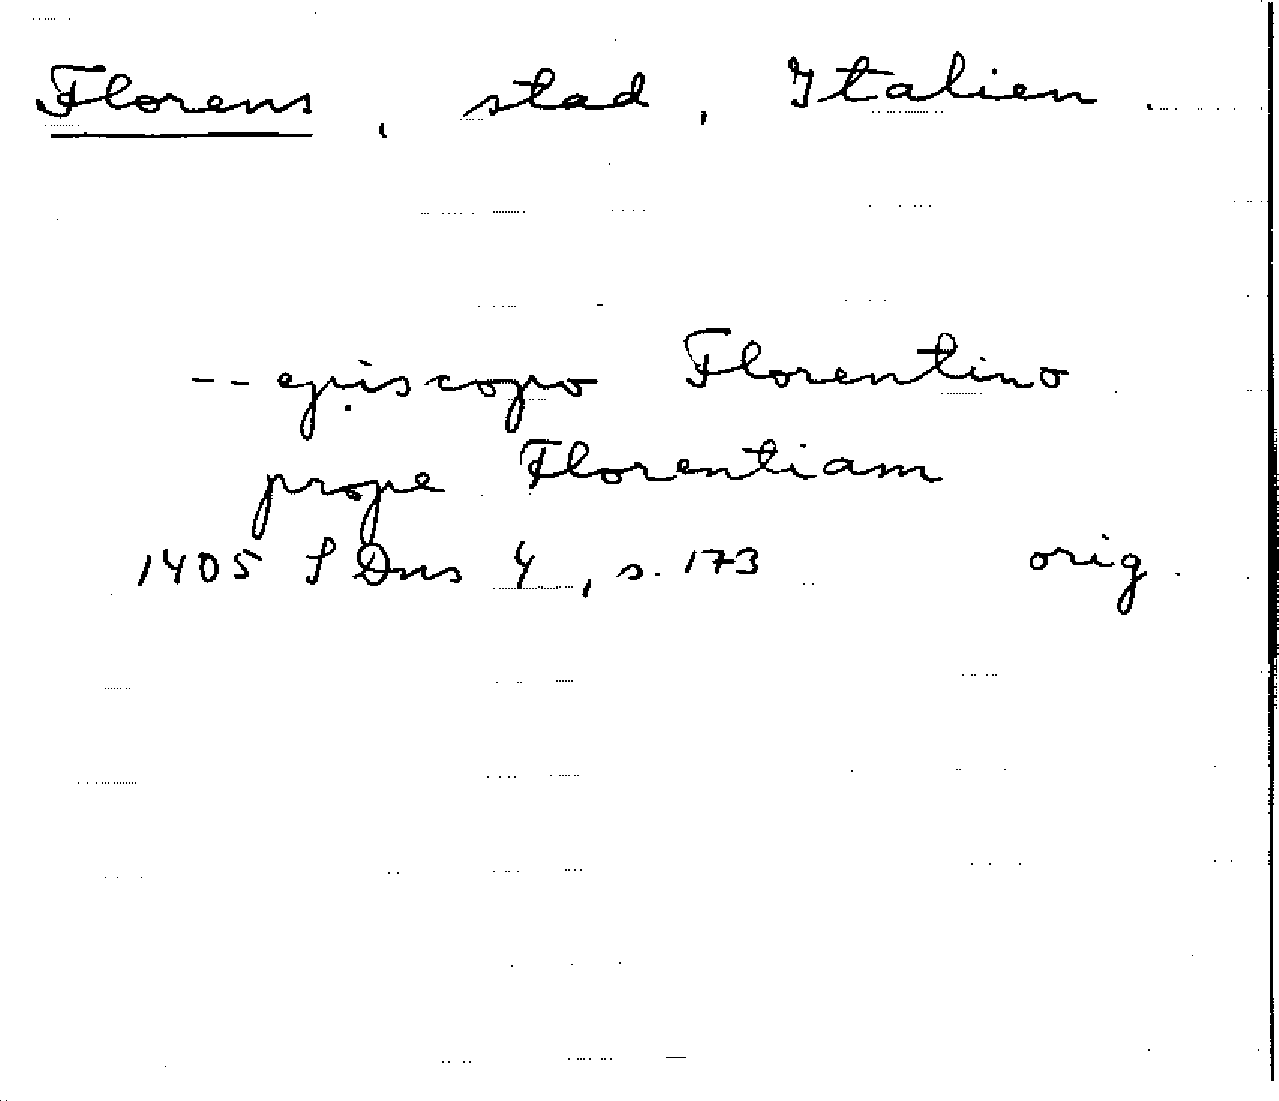 Florens, stad, Italien.
-- episcopo Florentino
prope Florentiam
1405 S Dns 4, s. 173 orig.